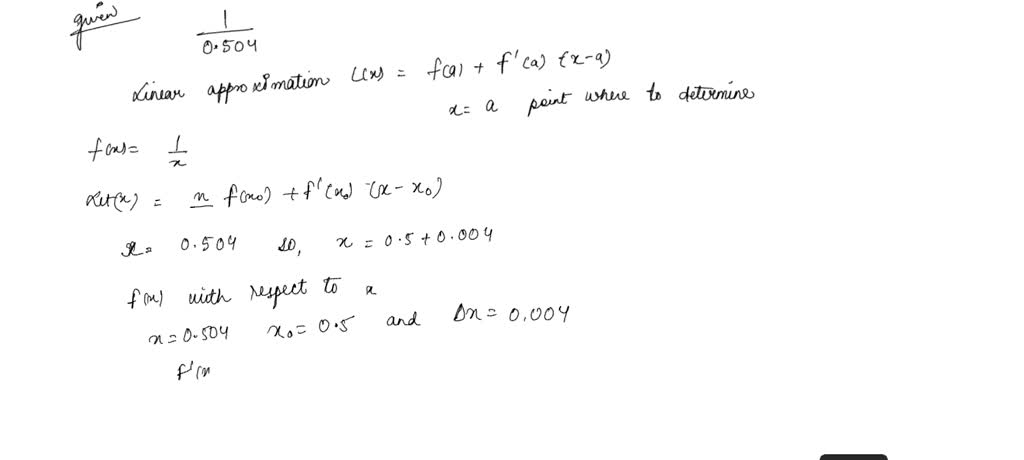 given
1/0.504
Linear approximation L(x) = f(a) + f'(a) (x-a)
x = a point where to determine
f(x) = 1/x
Let(x) = n f(x0) + f'(x0) (x - x0)
x = 0.504 so, x = 0.5 + 0.004
f(x) with respect to x
x = 0.504 x0 = 0.5 and Δx = 0.004
f'(x